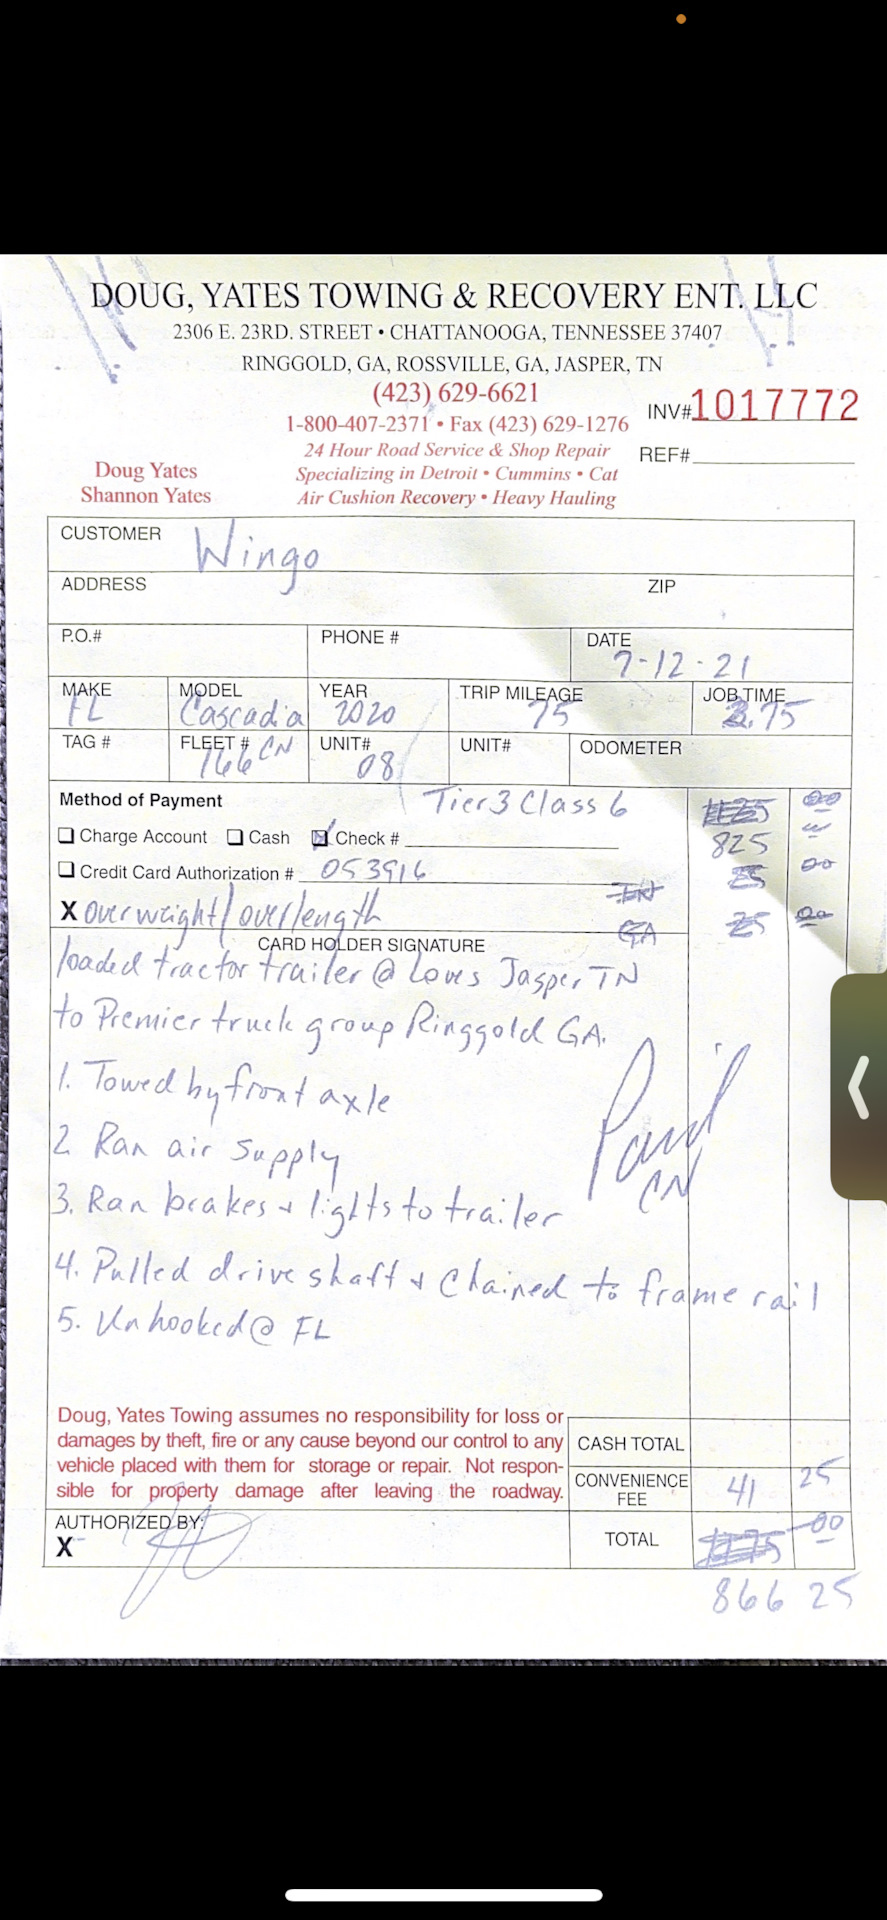 DOUG, YATES TOWING & RECOVERY ENT. LLC
2306 E. 23RD. STREET • CHATTANOOGA, TENNESSEE 37407
RINGGOLD, GA, ROSSVILLE, GA, JASPER, TN
(423) 629-6621
1-800-407-2371 • Fax (423) 629-1276
INV# 1017772
24 Hour Road Service & Shop Repair
REF#
Doug Yates
Specializing in Detroit • Cummins • Cat
Shannon Yates
Air Cushion Recovery • Heavy Hauling
CUSTOMER Wingo
ADDRESS ZIP
P.O.# PHONE # DATE
7-12-21
MAKE MODEL YEAR TRIP MILEAGE JOB TIME
FL Cascadia 2020 75 .75
TAG # FLEET # UNIT# UNIT# ODOMETER
166 CN 08
Method of Payment Tier 3 Class 6 1125 00
Charge Account Cash Check # 825
Credit Card Authorization # 053916 25 00
TN
X overweight/overlength GA 25 00
CARD HOLDER SIGNATURE
loaded tractor trailer @ Loves Jasper TN
to Premier truck group Ringgold GA.
1. Towed by front axle
2 Ran air supply
3. Ran brakes + lights to trailer
Paid
CN
4. Pulled drive shaft + Chained to frame rail
5. Unhooked @ FL
Doug, Yates Towing assumes no responsibility for loss or
damages by theft, fire or any cause beyond our control to any
vehicle placed with them for storage or repair. Not respon-
sible for property damage after leaving the roadway.
CASH TOTAL
CONVENIENCE FEE 41 25
AUTHORIZED BY:
X
TOTAL 1175 00
866 25